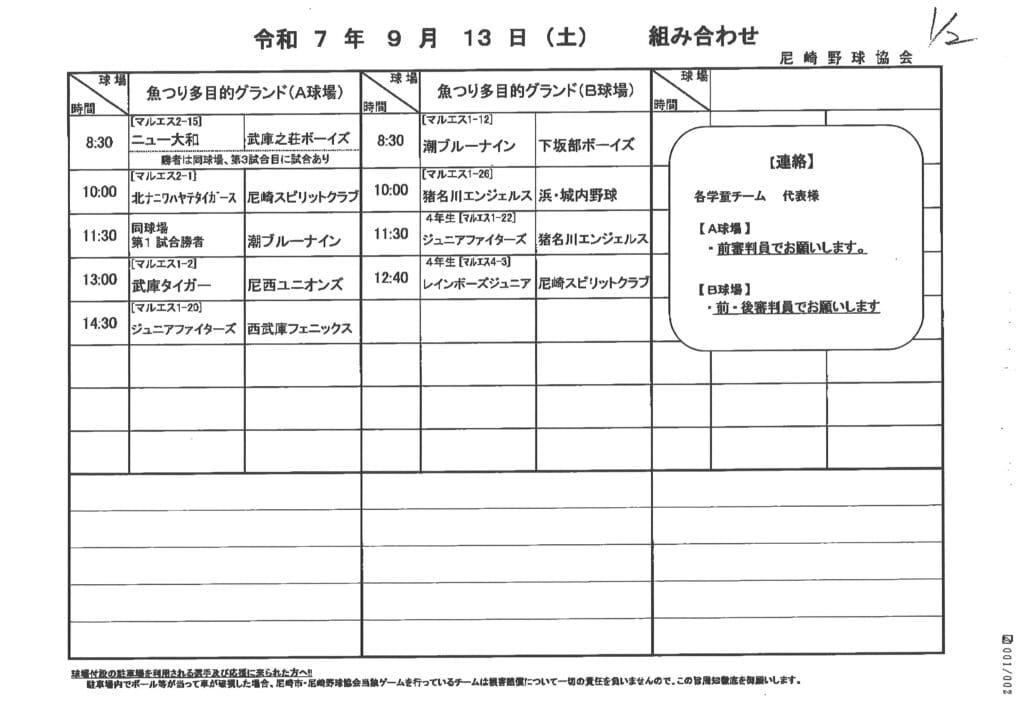 令和 7 年 9 月 13 日 (土) 組み合わせ
1/2
尼 崎 野 球 協 会
球場
時間
魚つり多目的グランド(A球場)
球場
時間
魚つり多目的グランド(B球場)
球場
時間
8:30
[マルエス2-15]
ニュー大和
武庫之荘ボーイズ
勝者は同球場、第3試合目に試合あり
8:30
[マルエス1-12]
潮ブルーナイン
下坂部ボーイズ
10:00
[マルエス2-1]
北ナニワハヤテタイガース
尼崎スピリットクラブ
10:00
[マルエス1-26]
猪名川エンジェルス
浜・城内野球
11:30
同球場
第1 試合勝者
潮ブルーナイン
11:30
4年生 [マルエス1-22]
ジュニアファイターズ
猪名川エンジェルス
13:00
[マルエス1-2]
武庫タイガー
尼西ユニオンズ
12:40
4年生 [マルエス4-3]
レインボーズジュニア
尼崎スピリットクラブ
14:30
[マルエス1-20]
ジュニアファイターズ
西武庫フェニックス
【連絡】
各学童チーム 代表様
【 A球場 】
・前審判員でお願いします。
【 B球場 】
・前・後審判員でお願いします
球場付設の駐車場を利用される選手及び応援に来られた方へ!!
駐車場内でボール等が当って車が破損した場合、尼崎市・尼崎野球協会当該ゲームを行っているチームは損害賠償について一切の責任を負いませんので、この旨周知徹底を御願いします。
001/002